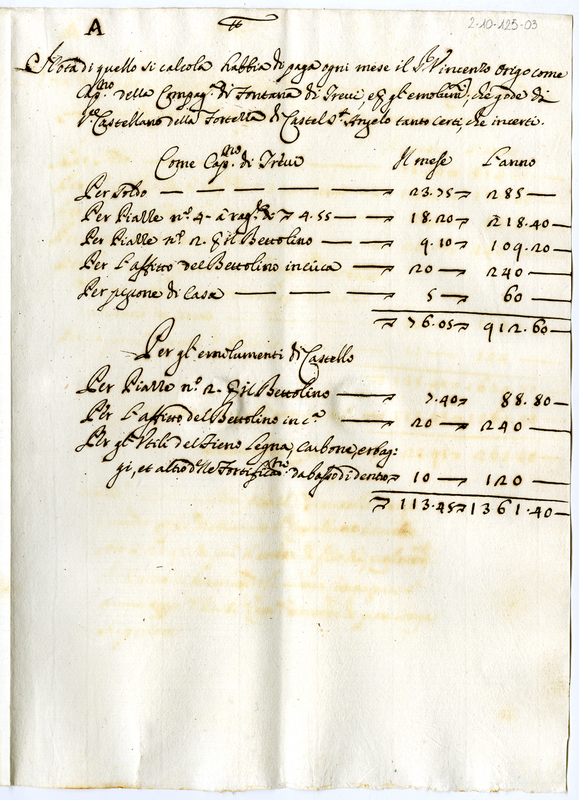 A
2-10-125-03
Nota di quello si calcola habbia di paga ogni mese il Sr. Vincenzo Origo come
Capno. della Compaga. di Fontana di Trevi, e p gl'emolumti., che gode di
Castellano della Fortezza di Castel St. Angelo tanto certi, che incerti.
Come Capno. di Trevi Il mese L'anno
Per soldo — — — — 23.75 — 285 —
Per Piazze no. 4 - à ragne. di 4.55 — 18.20 — 218.40 —
Per Piazze no. 2. p il Bettolino — 9.10 — 109.20 —
Per L'affitto del Bettolino incirca — 20 — 240 —
Per pigione di Casa — — — 5 — 60 —
76.05 — 912.60 —
Per gl'emolumenti di Castello
Per Piazze no. 2. p il Bettolino — 7.40 — 88.80 —
Per L'affitto del Bettolino in ca. — 20 — 240 —
Per gl'Utili del Fieno, Legna, Carbone, erbag:
gi, et altro delle Fortificni. da basso di dentro 10 — 120 —
113.45 — 1361.40 —